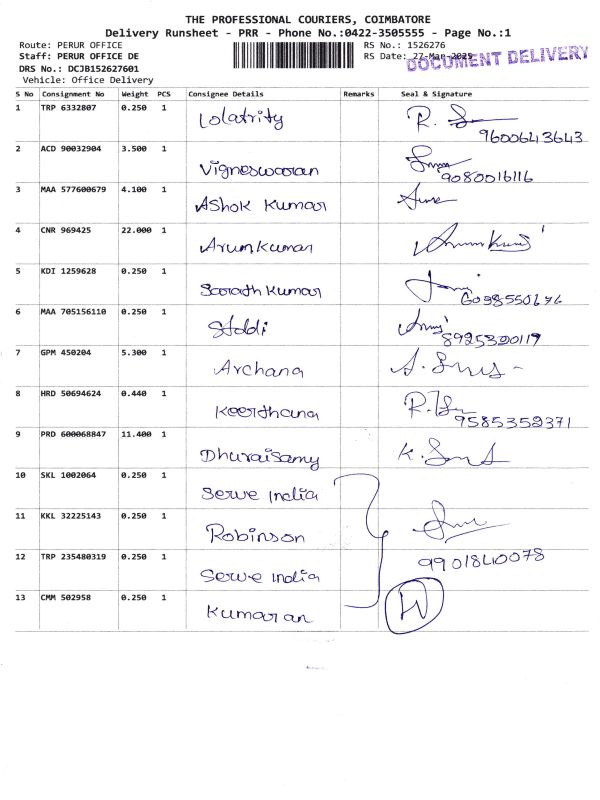 THE PROFESSIONAL COURIERS, COIMBATORE
Delivery Runsheet - PRR - Phone No.:0422-3505555 - Page No.:1
Route: PERUR OFFICE RS No.: 1526276
Staff: PERUR OFFICE DE RS Date: 27-Mar-2025 DOCUMENT DELIVERY
DRS No.: DCJB152627601
Vehicle: Office Delivery
S No Consignment No Weight PCS Consignee Details Remarks Seal & Signature
1 TRP 6332807 0.250 1 Lolatrity R.
9600643643
2 ACD 90032904 3.500 1 Vigneswaran
9080016116
3 MAA 577600679 4.100 1 Ashok Kumar
4 CNR 969425 22.000 1 Arunkumar Arunkumar
5 KDI 1259628 0.250 1 Sarath Kumar
6 MAA 705156110 0.250 1
8925320119
7 GPM 450204 5.300 1 Archana
8 HRD 50694624 0.440 1 Keerthana R.
9585352371
9 PRD 600068847 11.400 1 Dhuraisamy K.
10 SKL 1002064 0.250 1 Serve India
11 KKL 32225143 0.250 1 Robinson
12 TRP 235480319 0.250 1 Serve India 9901840078
13 CMM 502958 0.250 1 Kumaran